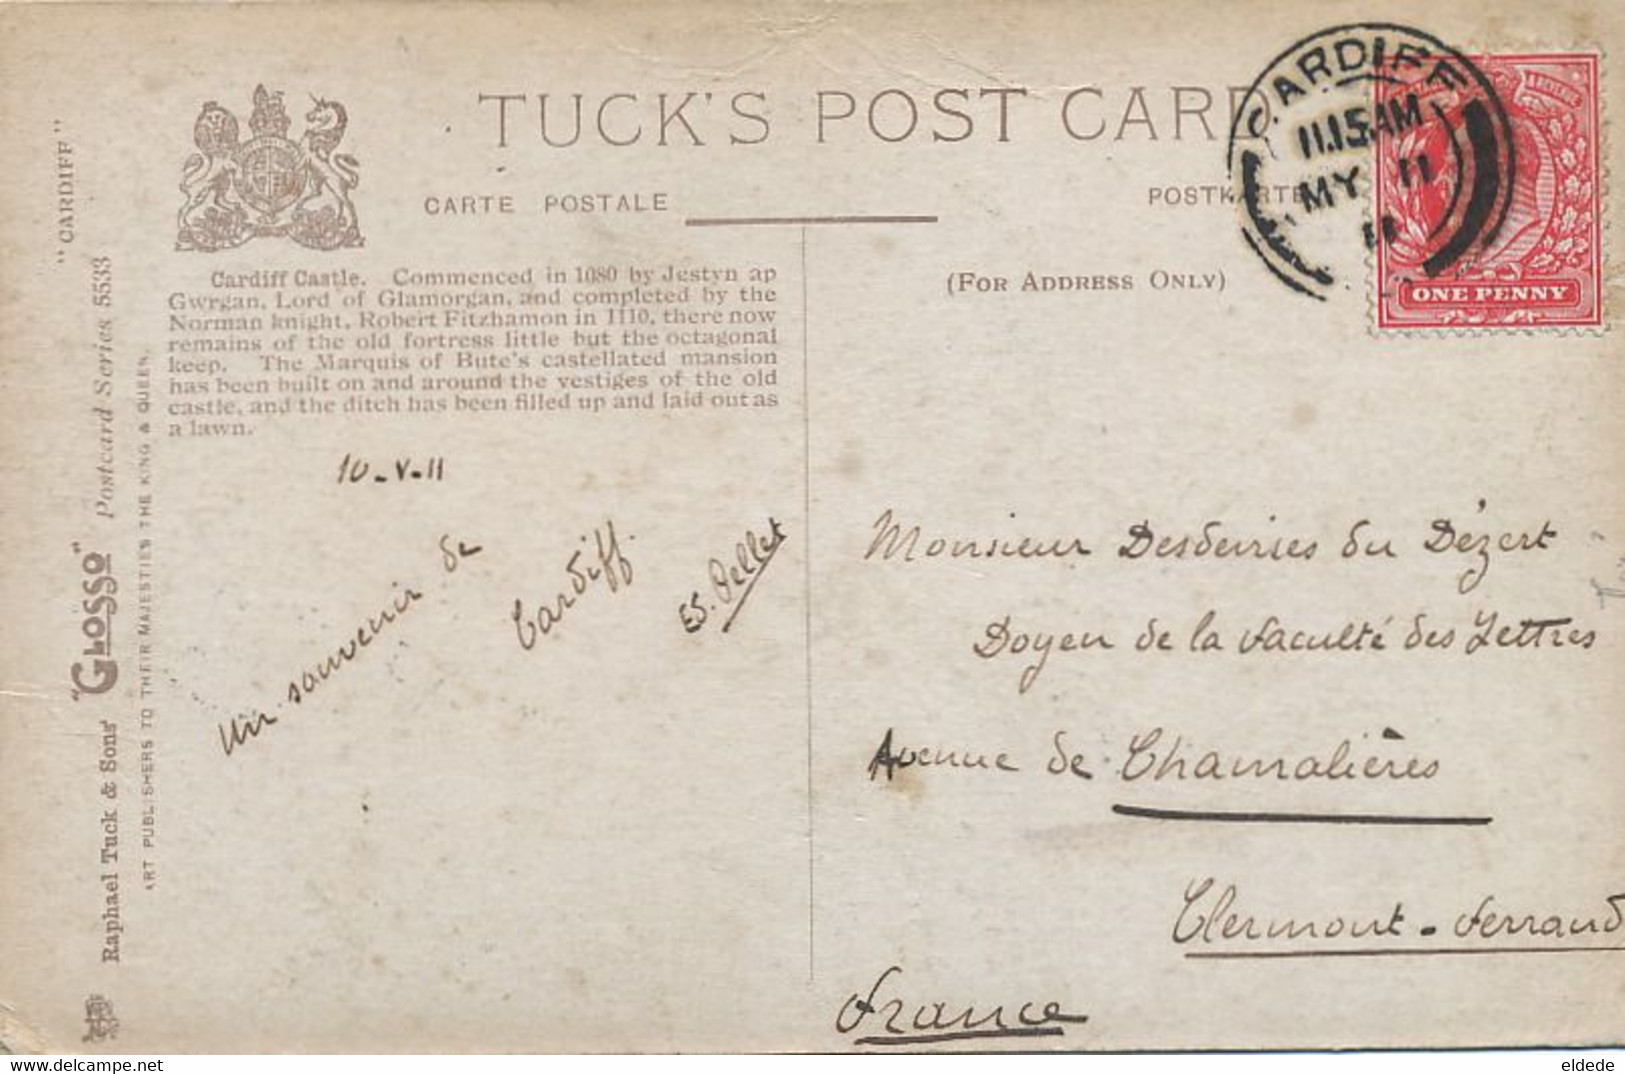 TUCK'S POST CARD
CARTE POSTALE
POSTKARTE
CARDIFF
11.15AM
MY 11
11
ONE PENNY
(FOR ADDRESS ONLY)
Cardiff Castle. Commenced in 1080 by Jestyn ap
Gwrgan, Lord of Glamorgan, and completed by the
Norman knight, Robert Fitzhamon in 1110, there now
remains of the old fortress little but the octagonal
keep. The Marquis of Bute's castellated mansion
has been built on and around the vestiges of the old
castle, and the ditch has been filled up and laid out as
a lawn.
10-V-11
Un souvenir de
Cardiff.
ES. Pellet
Monsieur Desdevises du Dézert
Doyen de la Faculté des Lettres
Avenue de Chamalières
Clermont-Ferrand
France
"CARDIFF"
Raphael Tuck & Sons' "GLOSSO" Postcard Series 5533
ART PUBLISHERS TO THEIR MAJESTIES THE KING & QUEEN.
delcampe.net
eldede